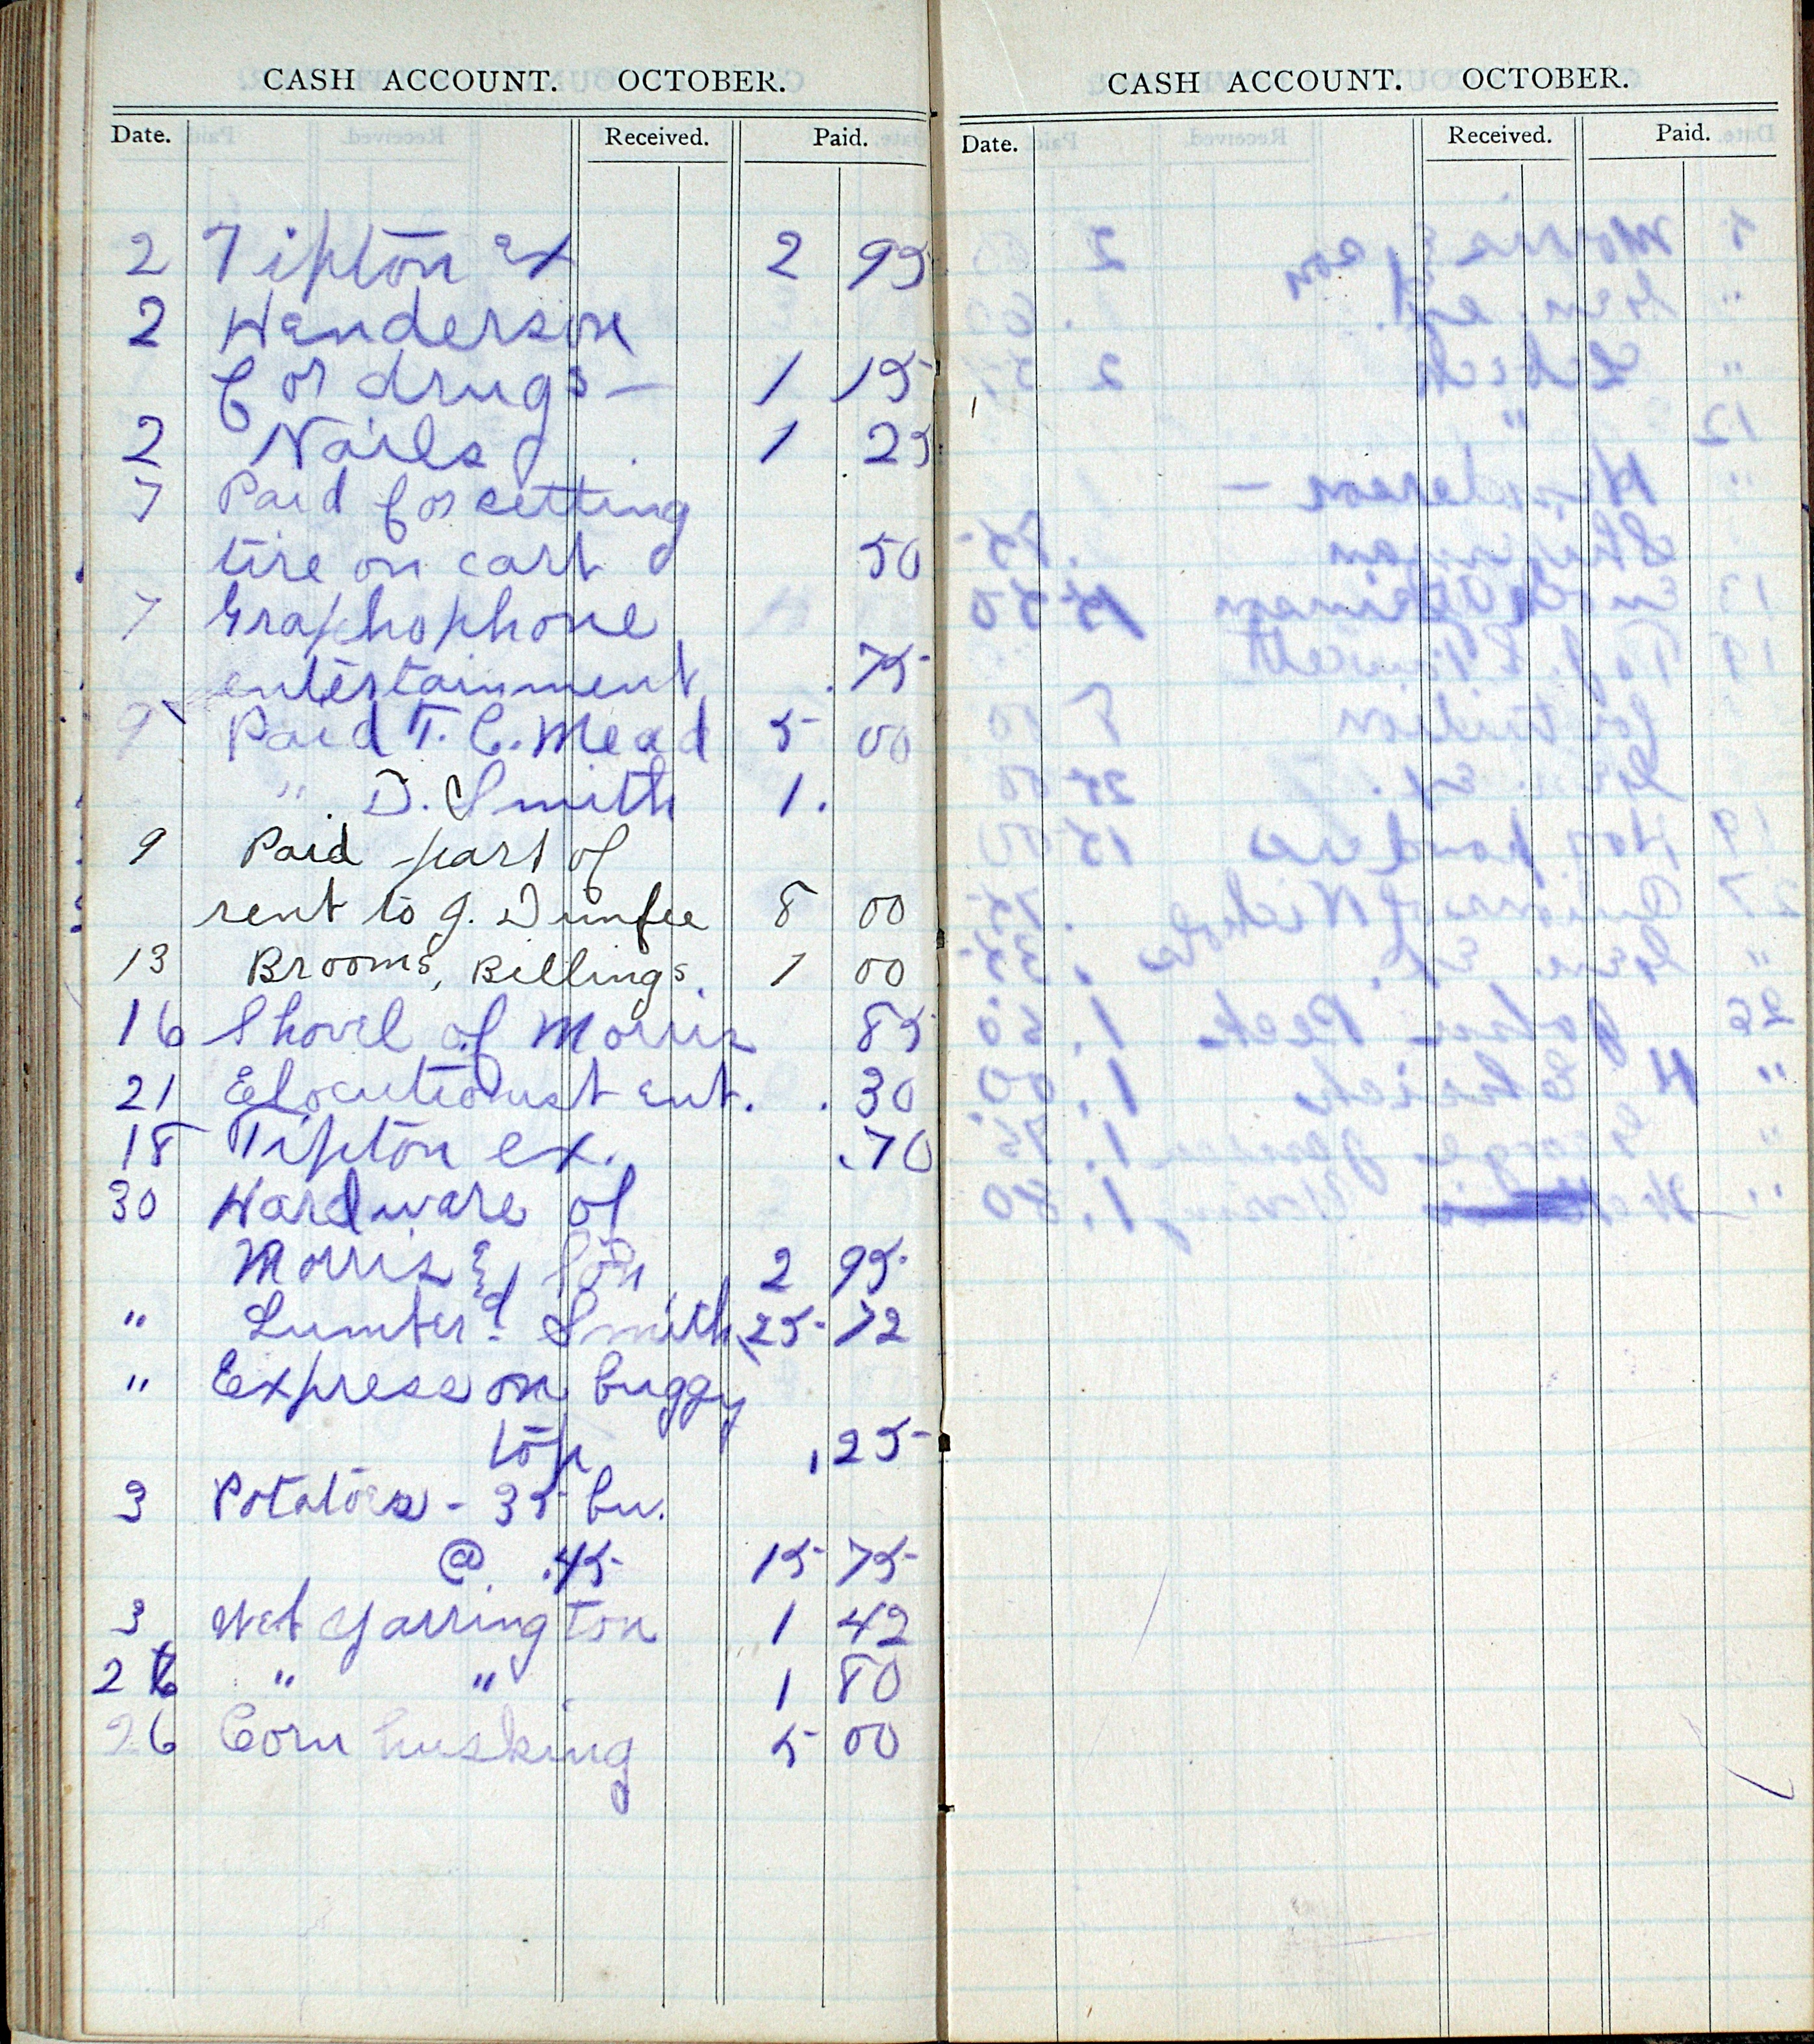 CASH ACCOUNT. OCTOBER.
Date. Received. Paid.
2 Tipton Ex 2 95
2 Henderson
for drugs — 1 15
2 Nails 1 25
7 Paid for setting
tire on cart 50
7 Graphophone
entertainment .75
9 Paid T. C. Mead 5 00
" D. Smith 1.
9 Paid part of
rent to J. Dunfee 8 00
13 Brooms, Billings. 1 00
16 Shovel of Morris 85
21 Elocutionist ent. .30
18 Tipton ex. .70
30 Hardware of
Morris & Son 2 95
" Lumber Smith 25 72
" Express on buggy
top .25
3 Potatoes - 35 bu.
@ .45 15 75
3 Net Yarrington 1 42
26 " " 1 80
26 Corn husking 5 00
CASH ACCOUNT. OCTOBER.
Date. Received. Paid.